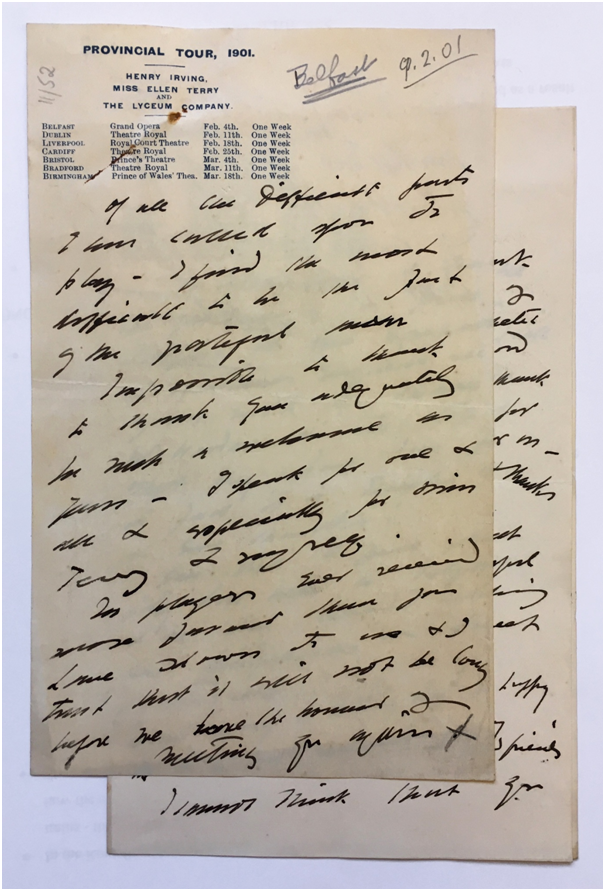 11/52
PROVINCIAL TOUR, 1901.
Belfast 9.2.01
HENRY IRVING,
MISS ELLEN TERRY
AND
THE LYCEUM COMPANY.
BELFAST Grand Opera Feb. 4th. One Week
DUBLIN Theatre Royal Feb. 11th. One Week
LIVERPOOL Royal Court Theatre Feb. 18th. One Week
CARDIFF Theatre Royal Feb. 25th. One Week
BRISTOL Prince's Theatre Mar. 4th. One Week
BRADFORD Theatre Royal Mar. 11th. One Week
BIRMINGHAM Prince of Wales' Thea. Mar. 18th. One Week
Of all the difficult parts
I am called upon to
play - I find the most
difficult to be the part
of the grateful man
Impossible to
to thank you adequately
for such a welcome as
yours - I speak for one &
all & especially for Miss
Terry & myself
No players ever received
more than you
have shown to us & I
trust that it will not be long
before we have the honour of
meeting you again X
thank
for
thanks
happy
friends
I cannot think that you